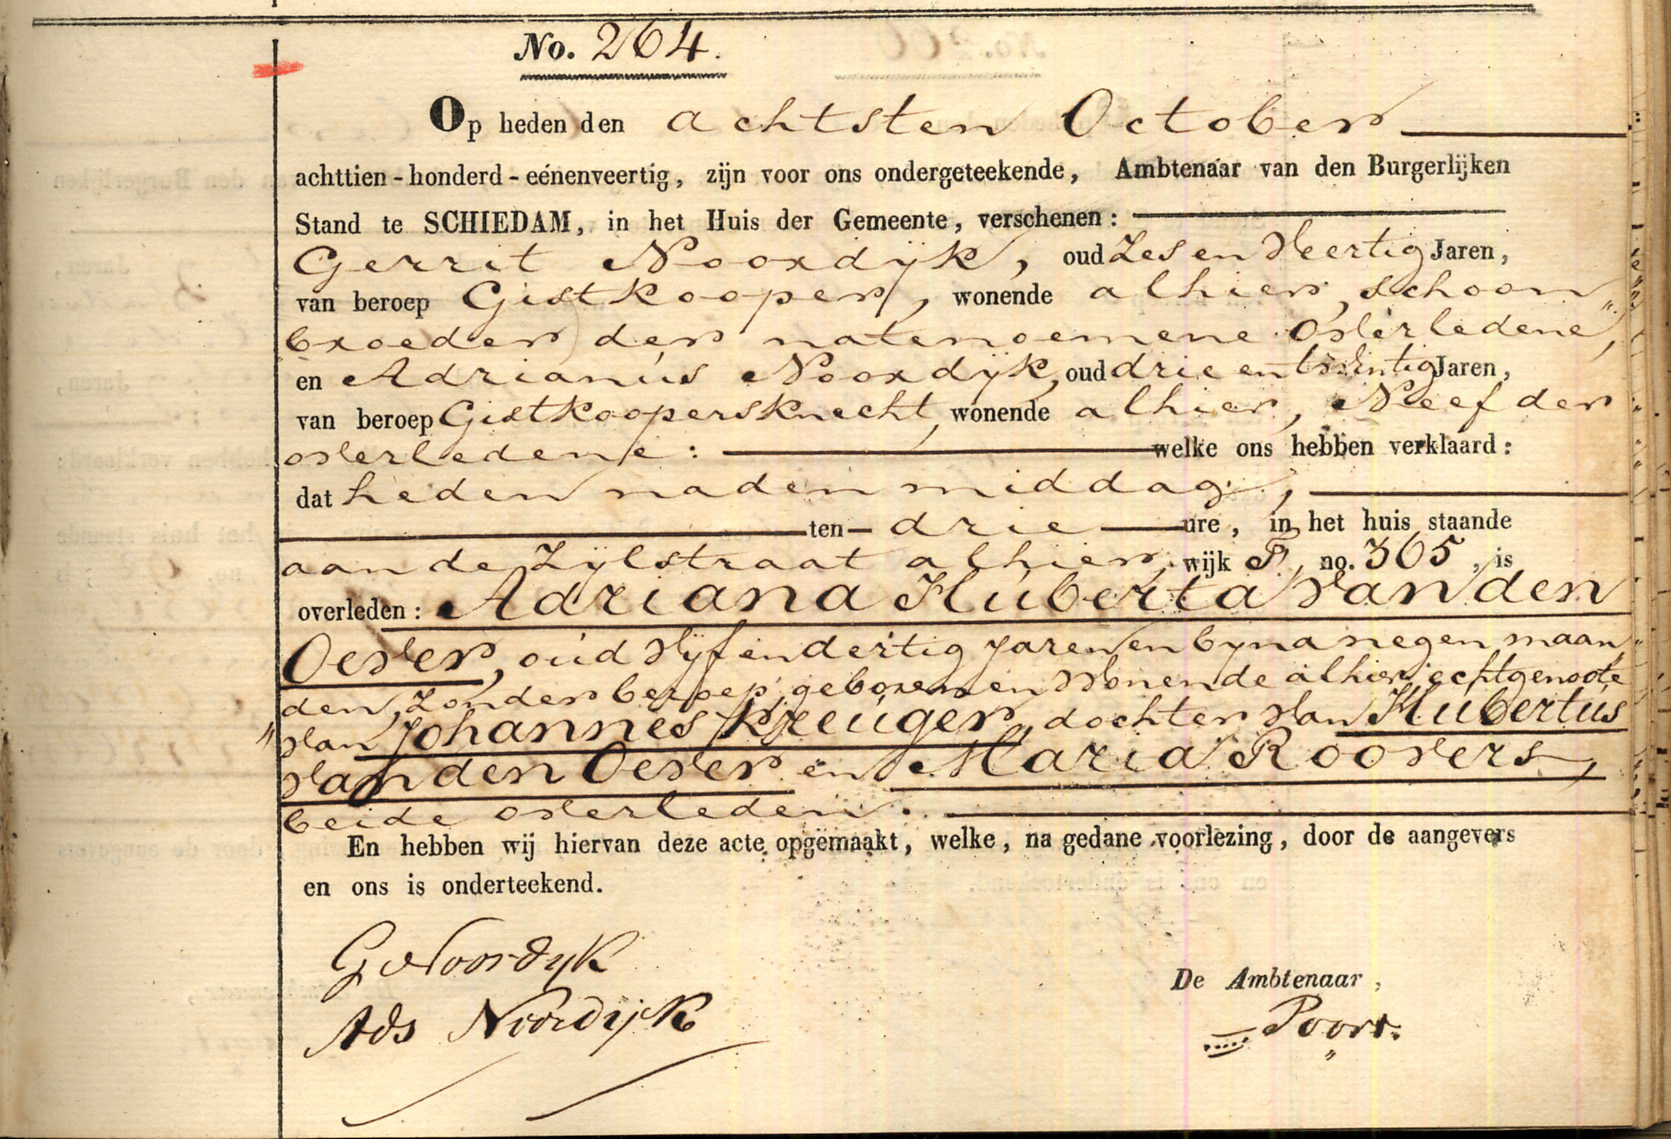 No. 264.
Op heden den achtsten October
achttien-honderd-eénenveertig, zijn voor ons ondergeteekende, Ambtenaar van den Burgerlijken
Stand te SCHIEDAM, in het Huis der Gemeente, verschenen:
Gerrit Noordijk, oud Zes en Veertig Jaren,
van beroep Gistkooper, wonende alhier, schoon
broeder der natenoemene Overledene,
en Adrianus Noordijk, oud drie en twintig Jaren,
van beroep Gistkoopersknecht, wonende alhier, Neef der
overledene: welke ons hebben verklaard:
dat heden nademiddag,
ten drie ure, in het huis staande
aan de Zylstraat alhier, wijk F, no. 365, is
overleden: Adriana Huberta van den
Oever, oud vyf en dertig jaren en byna negen maan
den, Zonder beroep, geboren en wonende alhier, echtgenoote
van Johannes Kreuger, dochter van Hubertus
van den Oever en Maria Roovers,
beide overleden.
En hebben wij hiervan deze acte opgemaakt, welke, na gedane voorlezing, door de aangevers
en ons is onderteekend.
G Noordyk
De Ambtenaar,
Ads Noordijk
Poort